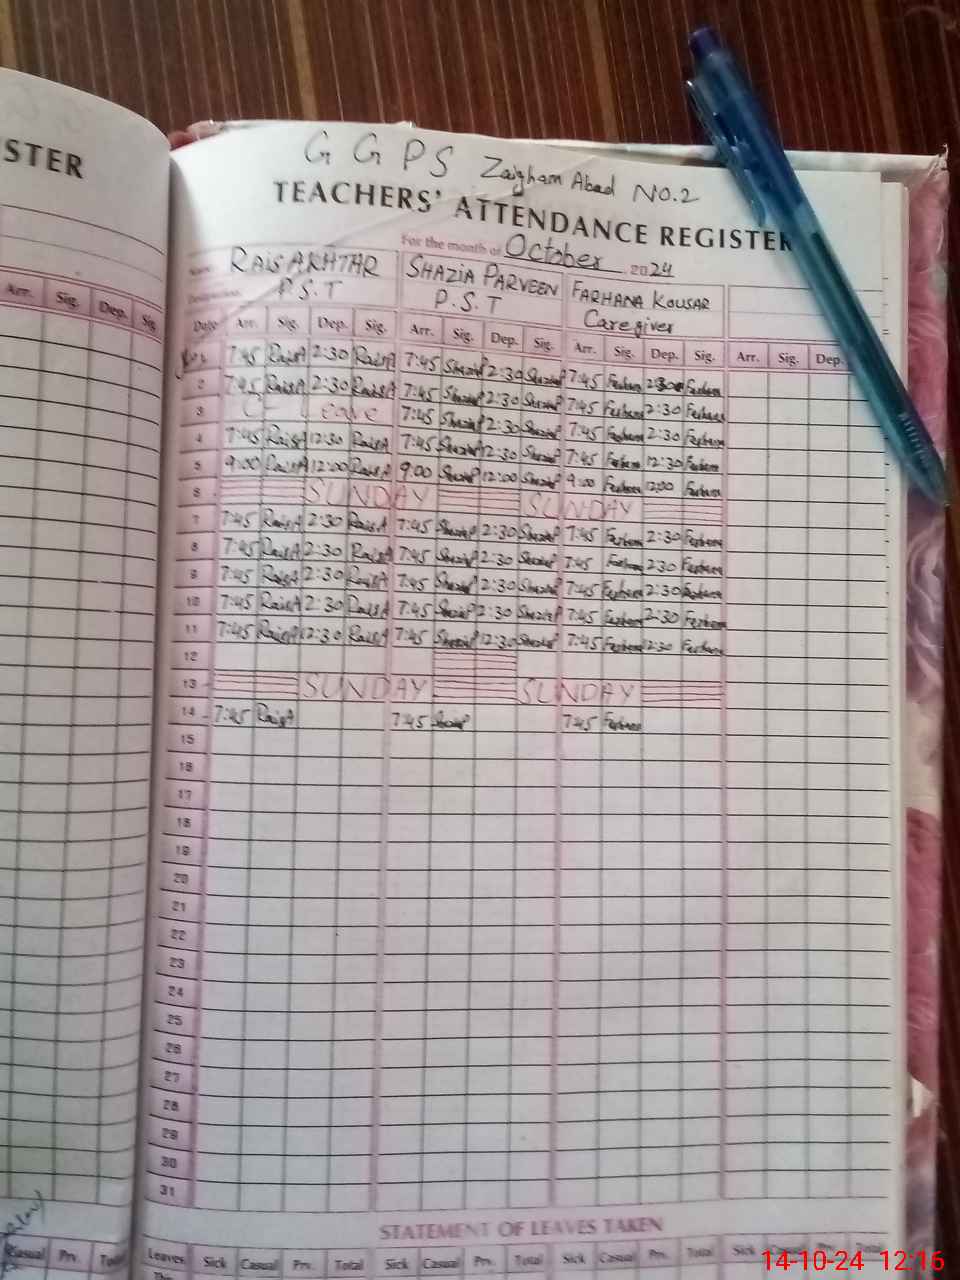 STER
Arr. Sig. Dep. Sig
G G P S Zaigham Abad NO.2
TEACHERS' ATTENDANCE REGISTER
For the month of October 2024
Name RAIS AKHTAR SHAZIA PARVEEN FARHANA KOUSAR
P.S.T P.S.T Caregiver
Date Arr. Sig. Dep. Sig. Arr. Sig. Dep. Sig. Arr. Sig. Dep. Sig. Arr. Sig. Dep.
7:45 RaisA 2:30 RaisA 7:45 ShaziaP 2:30 ShaziaP 7:45 Farhana 2:30 Farhana
2 7:45 RaisA 2:30 RaisA 7:45 ShaziaP 2:30 ShaziaP 7:45 Farhana 2:30 Farhana
3 Leave 7:45 ShaziaP 2:30 ShaziaP 7:45 Farhana 2:30 Farhana
4 7:45 RaisA 12:30 RaisA 7:45 ShaziaP 12:30 ShaziaP 7:45 Farhana 12:30 Farhana
5 9:00 RaisA 12:00 RaisA 9:00 ShaziaP 12:00 ShaziaP 9:00 Farhana 12:00 Farhana
6 SUNDAY SUNDAY
7 7:45 RaisA 2:30 RaisA 7:45 ShaziaP 2:30 ShaziaP 7:45 Farhana 2:30 Farhana
8 7:45 RaisA 2:30 RaisA 7:45 ShaziaP 2:30 ShaziaP 7:45 Farhana 2:30 Farhana
9 7:45 RaisA 2:30 RaisA 7:45 ShaziaP 2:30 ShaziaP 7:45 Farhana 2:30 Farhana
10 7:45 RaisA 2:30 RaisA 7:45 ShaziaP 2:30 ShaziaP 7:45 Farhana 2:30 Farhana
11 7:45 RaisA 12:30 RaisA 7:45 ShaziaP 12:30 ShaziaP 7:45 Farhana 12:30 Farhana
12
13 SUNDAY SUNDAY
14 7:45 RaisA 7:45 ShaziaP 7:45 Farhana
15
16
17
18
19
20
21
22
23
24
25
26
27
28
29
30
31
STATEMENT OF LEAVES TAKEN
Casual Prv. Total
Leaves Sick Casual Prv. Total Sick Casual Prv. Total Sick Casual Prv. Total Sick Casual
14-10-24 12:16